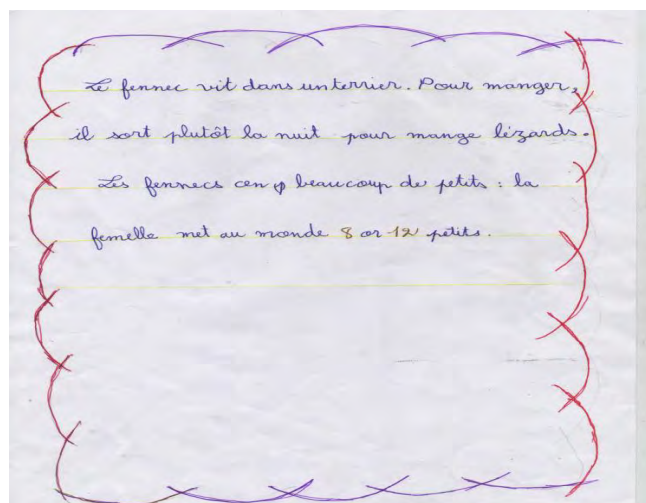 Le fennec vit dans un terrier. Pour manger,
il sort plutôt la nuit pour mange lézards.
Les fennecs beaucoup de petits : la
femelle met au monde 8 or 12 petits.